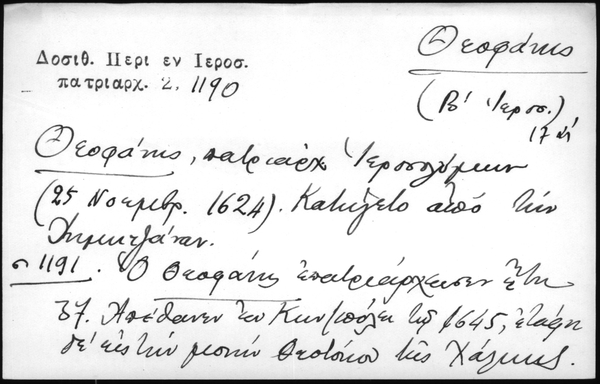 Δοσιθ. Περι εν Ιεροσ.
πατριαρχ. 2, 1190
Θεοφάνης
(Β' Ἱεροσ.)
17 αἰ
Θεοφάνης, πατριάρχ Ἱεροσολύμων
(25 Νοεμβρ. 1624). Κατήγετο ἀπό τήν
Δημητζάναν.
σ 1191. Ὁ Θεοφάνης ἐπατριάρχευσεν ἔτη
37. Ἀπέθανεν ἐν Κων/πόλει τῷ 1645, ἐτάφη
δέ εἰς τήν μονήν Θεοτόκου τῆς Χάλκης.